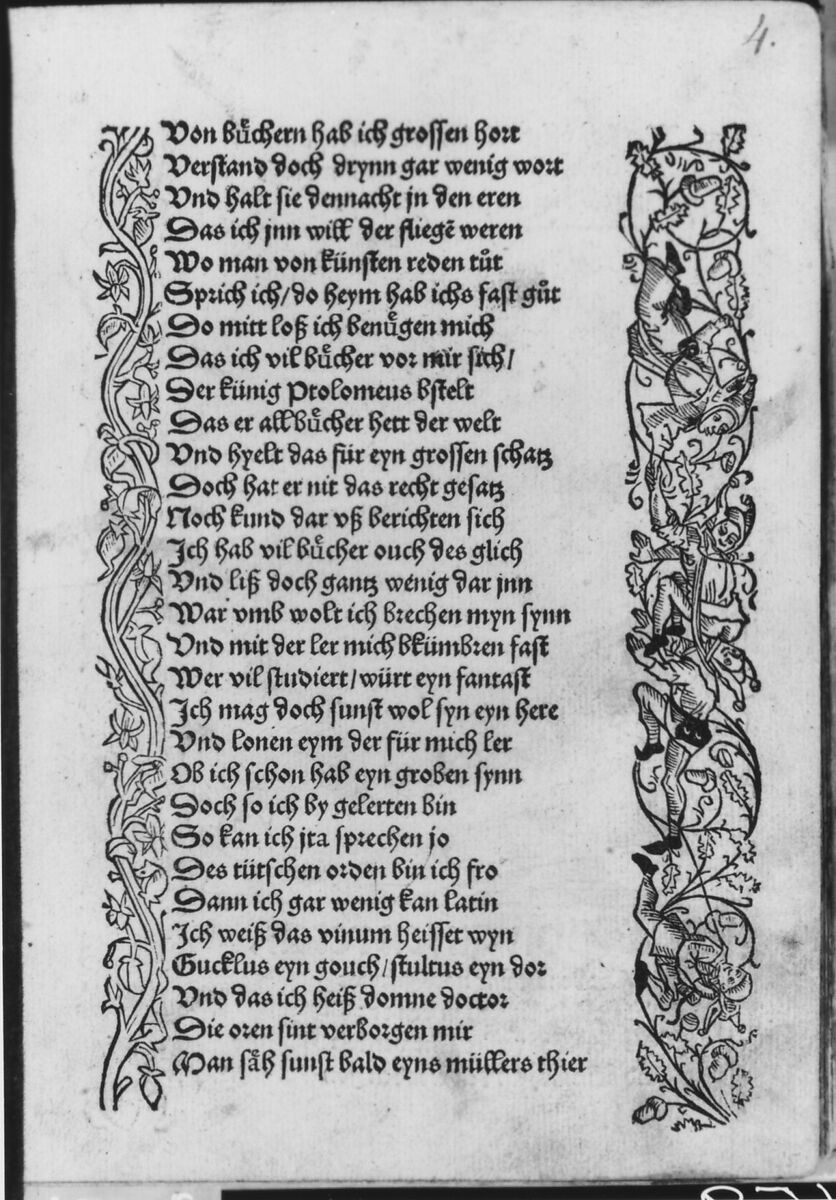 4.
Von buͤchern hab ich grossen hort
Verstand doch drynn gar wenig wort
Vnd halt sie dennacht jn den eren
Das ich jnn will der fliegē weren
Wo man von künsten reden tuͦt
Sprich ich / do heym hab ichs fast guͦt
Do mitt loß ich benuͤgen mich
Das ich vil buͤcher vor mir sich /
Der künig Ptolomeus bstelt
Das er all buͤcher hett der welt
Vnd hyelt das für eyn grossen schatz
Doch hat er nit das recht gesatz
Noch kund dar vß berichten sich
Ich hab vil buͤcher ouch des glich
Vnd liß doch gantz wenig dar jnn
War vmb wolt ich brechen myn synn
Vnd mit der ler mich bkümbren fast
Wer vil studiert / würt eyn fantast
Ich mag doch sunst wol syn eyn here
Vnd lonen eym der für mich ler
Ob ich schon hab eyn groben synn
Doch so ich by gelerten bin
So kan ich jta sprechen jo
Des tütschen orden bin ich fro
Dann ich gar wenig kan latin
Ich weiß das vinum heisset wyn
Gucklus eyn gouch / stultus eyn dor
Vnd das ich heiß domne doctor
Die oren sint verborgen mir
Man saͤh sunst bald eyns müllers thier